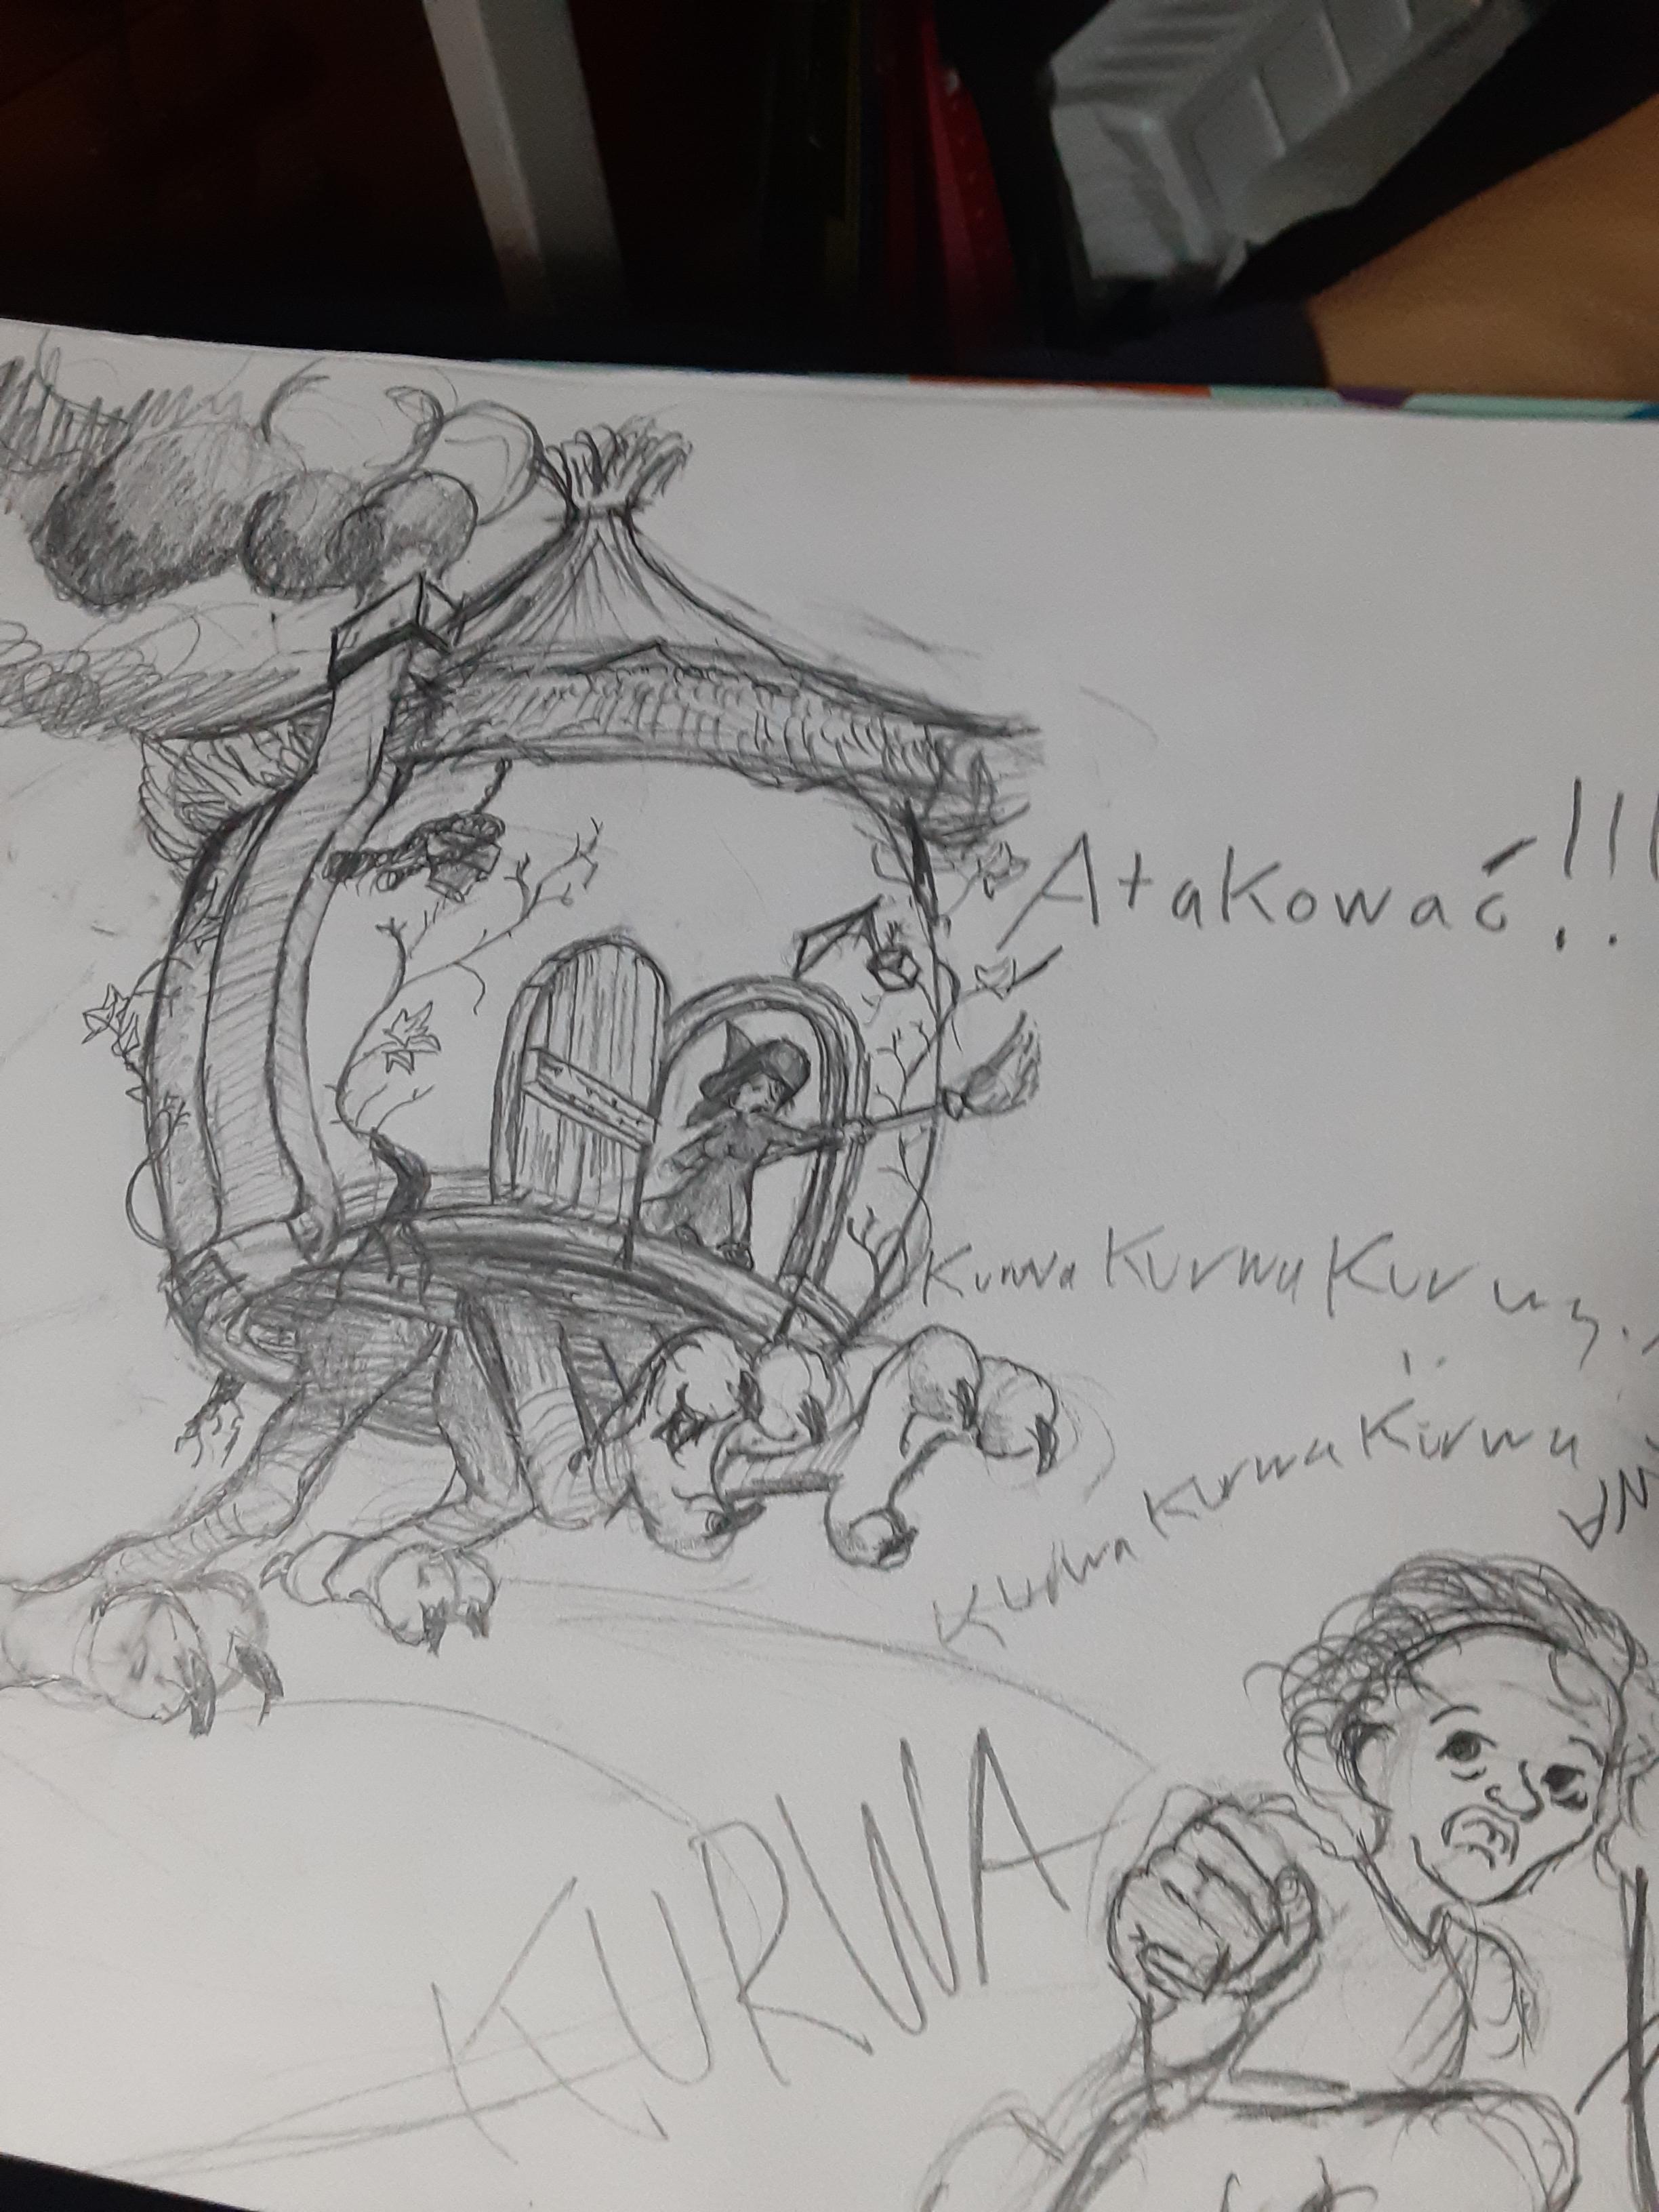 Atakować!!!
Kurwa Kurwa Kurwa
Kurwa Kurwa Kurwa
KURWA